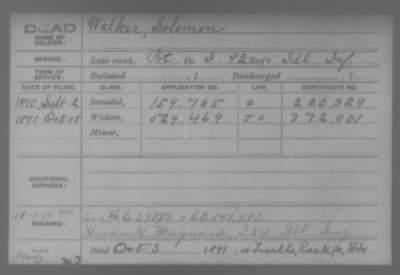 DEAD Walker, Solomon
NAME OF SOLDIER:
SERVICE: Late rank, Pvt Co. I, 92 Reg't Ill Inf.
TERM OF SERVICE: Enlisted , 1 Discharged , 1
DATE OF FILING. CLASS. APPLICATION NO. LAW. CERTIFICATE NO.
1870 Sept 2 Invalid, 159.765 O 220.329
1891 Oct 15 Widow, 529.469 J O 372,901
Minor,
ADDITIONAL SERVICES:
REMARKS: C 141,282
Hiram H. Maynard, I 34 Ill Inf.
Died Oct 3, 1891, at Rock Co, Wis